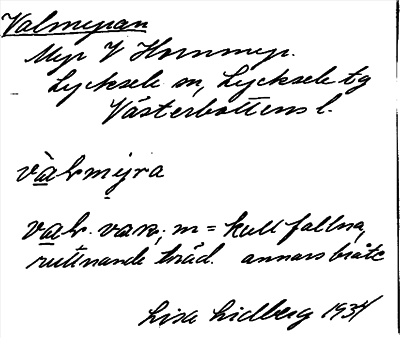 Valmyran
Myr V Hornmyr.
Lycksele sn, Lycksele tg
Västerbottens l.
vàlmy̱ra
val. van; m = kullfallna,
ruttnande träd. annars bråte
Lisa Lidberg 1934